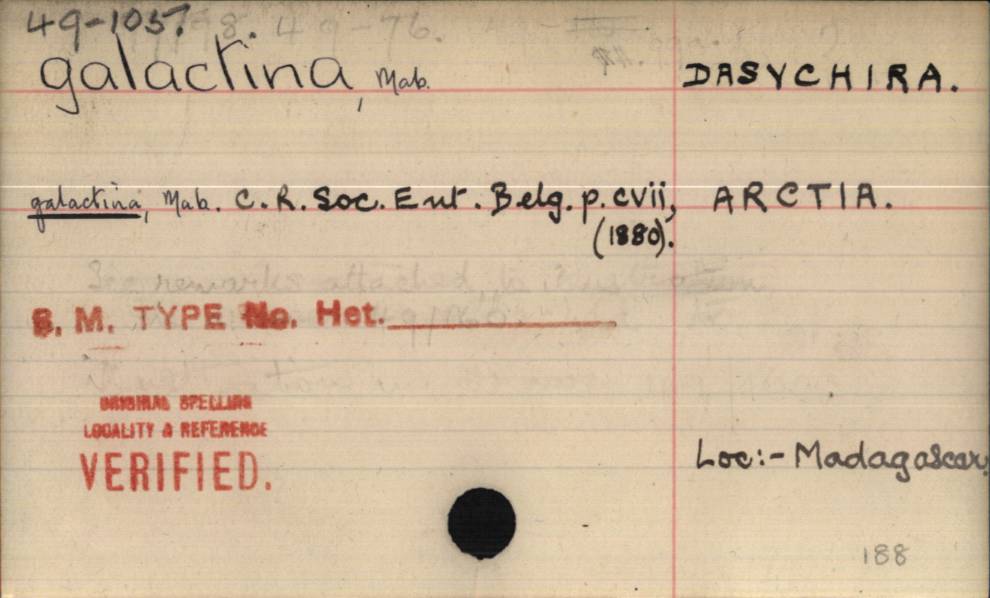 49-1057.
galactina, Mab.
DASYCHIRA.
galactina, Mab. C.R. Soc. Ent. Belg. p. cvii, (1880).
ARCTIA.
B. M. TYPE No. Het.
ORIGINAL SPELLING
LOCALITY & REFERENCE
VERIFIED.
Loc:- Madagascar.
188